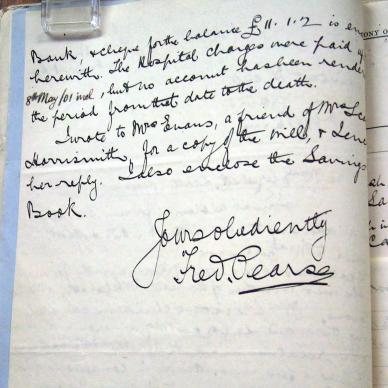 Bank, & cheque for the balance £11.1.2 is en
herewith. The Hospital charges were paid
8th May/01 incl., but no account has been rende
the period from that date to the death.
I wrote to Mrs Evans, a friend of Mrs
Harrismith, for a copy of the will, &
her reply. I also enclose the Savings
Book.
Yours obediently
Fred. Pearse
ONY O